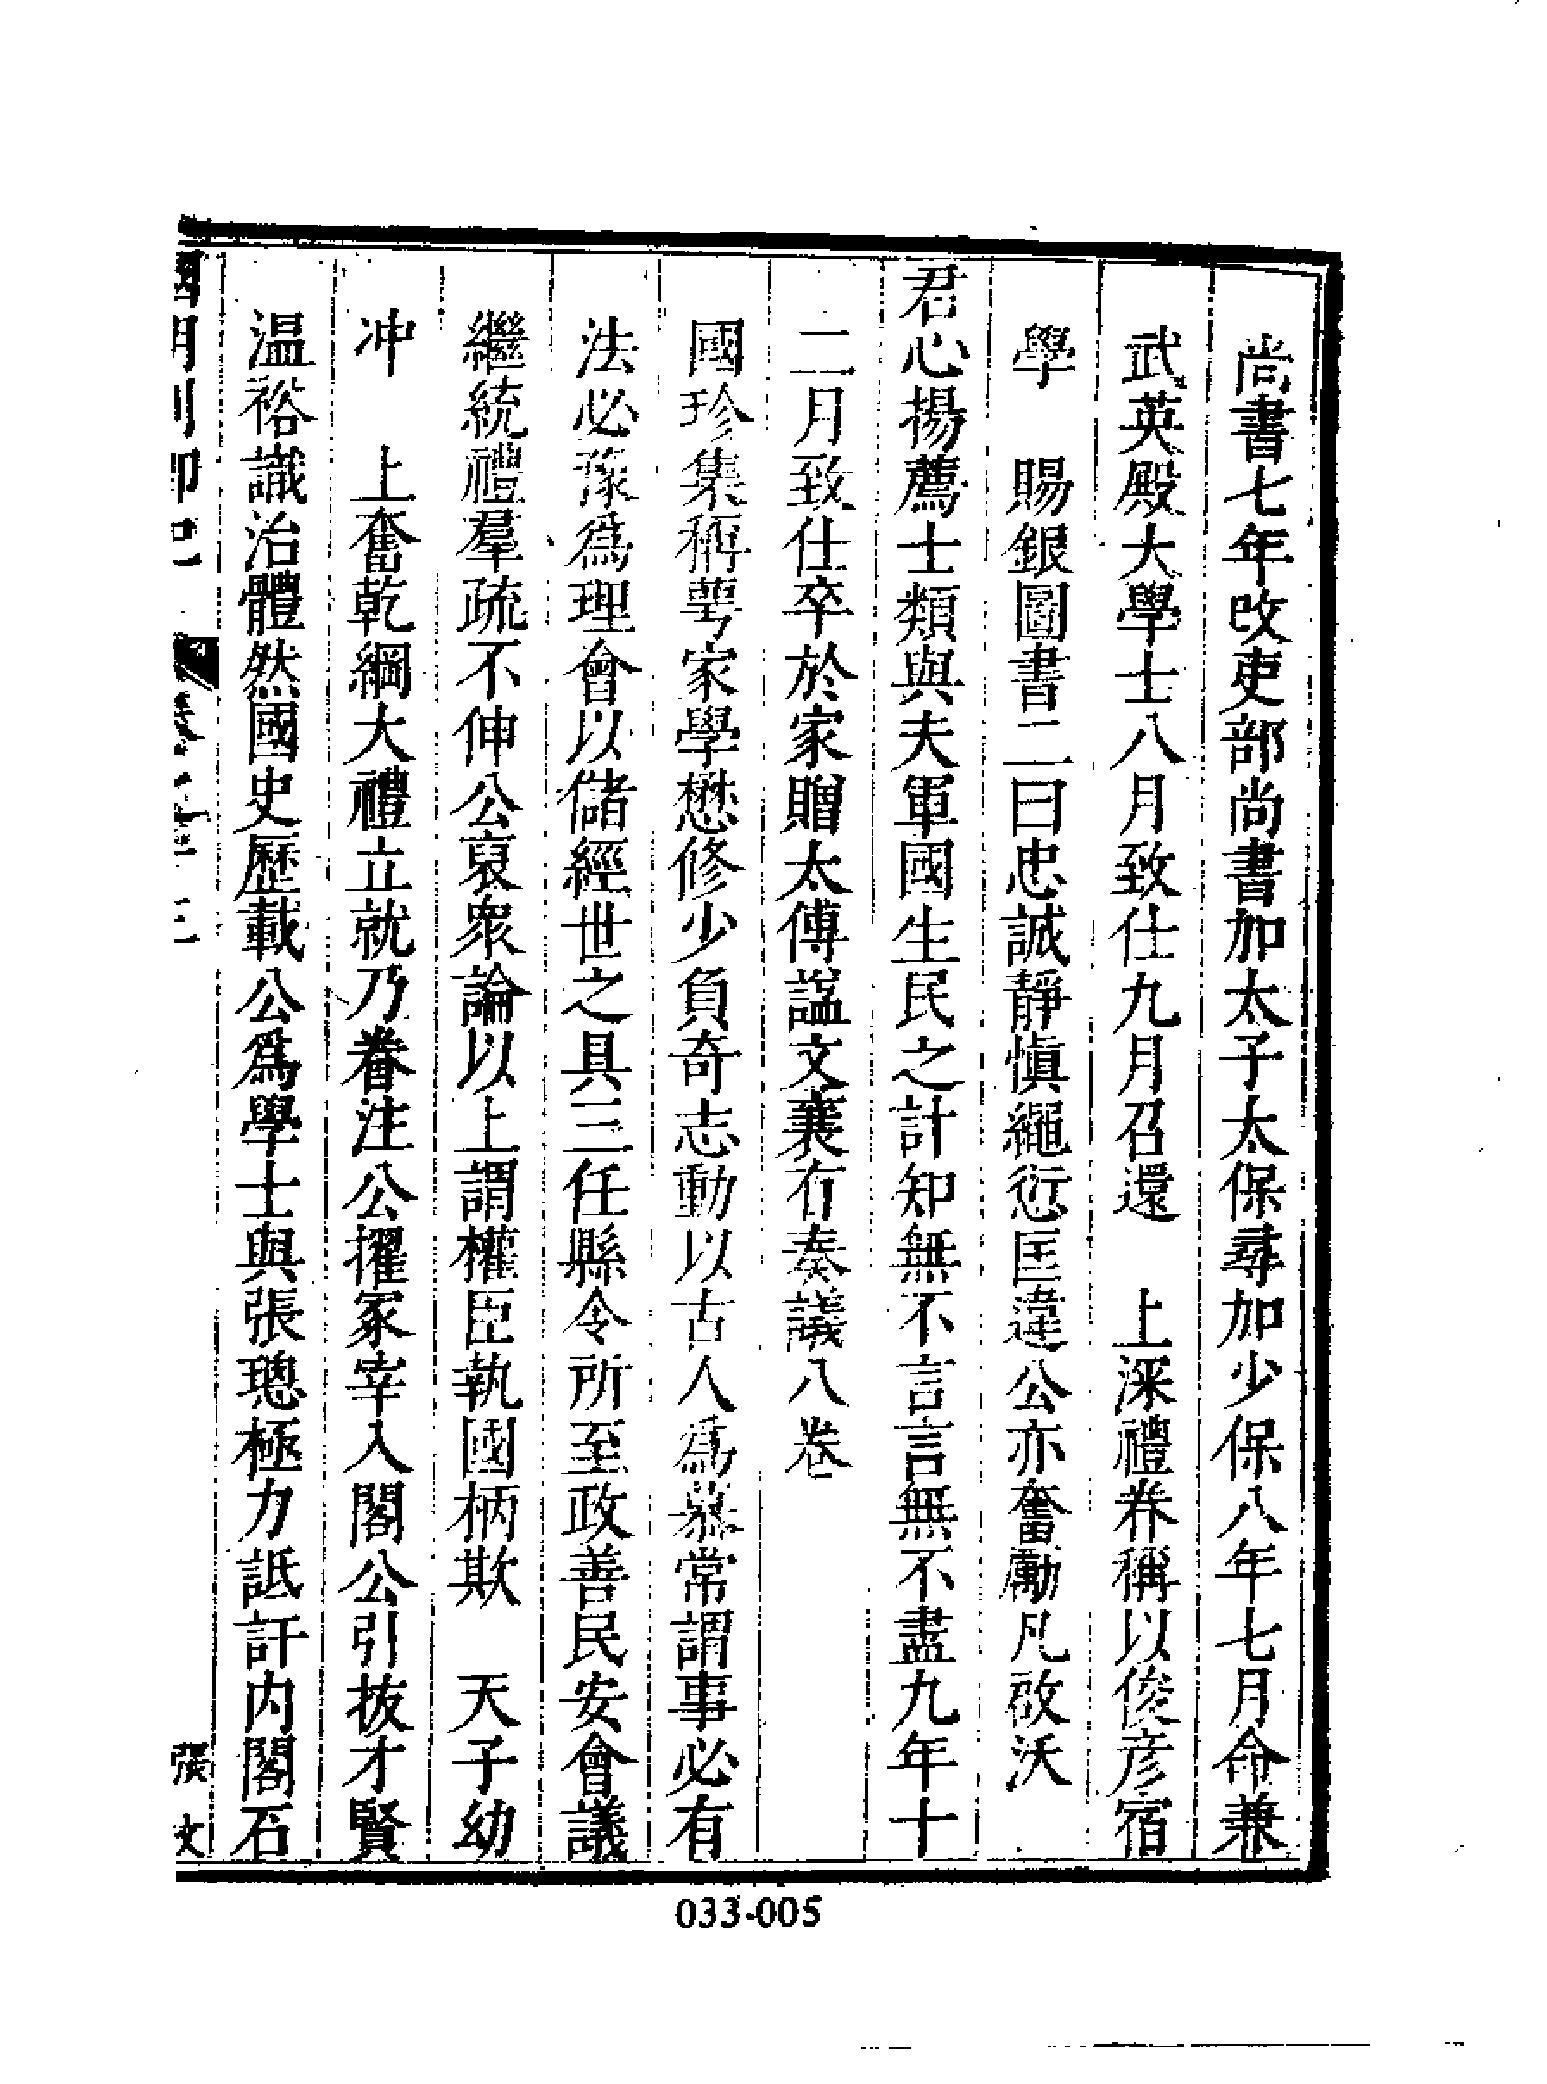 尚書七年改吏部尚書加太子太保尋加少保八年七月命兼
武英殿大學士八月致仕九月召還　上深禮眷稱以俊彦宿
學　賜銀圖書二曰忠誠靜慎繩愆匡違公亦奮勵凡啟沃
君心揚薦士類與夫軍國生民之計知無不言言無不盡九年十
二月致仕卒於家贈太傅諡文襄有奏議八卷
國珍集稱萼家學懋修少負奇志動以古人為慕常謂事必有
法必豫爲理會以儲經世之具三任縣令所至政善民安會議
繼統禮羣疏不伸公裒衆論以上謂權臣執國柄欺　天子幼
冲　上奮乾綱大禮立就乃眷注公擢冢宰入閣公引拔才賢
温裕識治體然國史歷載公爲學士與張璁極力詆訐内閣石
國朝列卿紀　卷之十三　張文
033-005